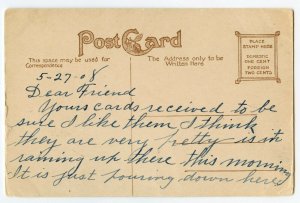 Post Card
This space may be used for
Correspondence
The Address only to be
Written Here
PLACE
STAMP HERE
DOMESTIC
ONE CENT
FOREIGN
TWO CENTS
5-27-08
Dear Friend
Yours cards received to be
sure I like them I think
they are very pretty is it
raining up there this morning
It is just pouring down here